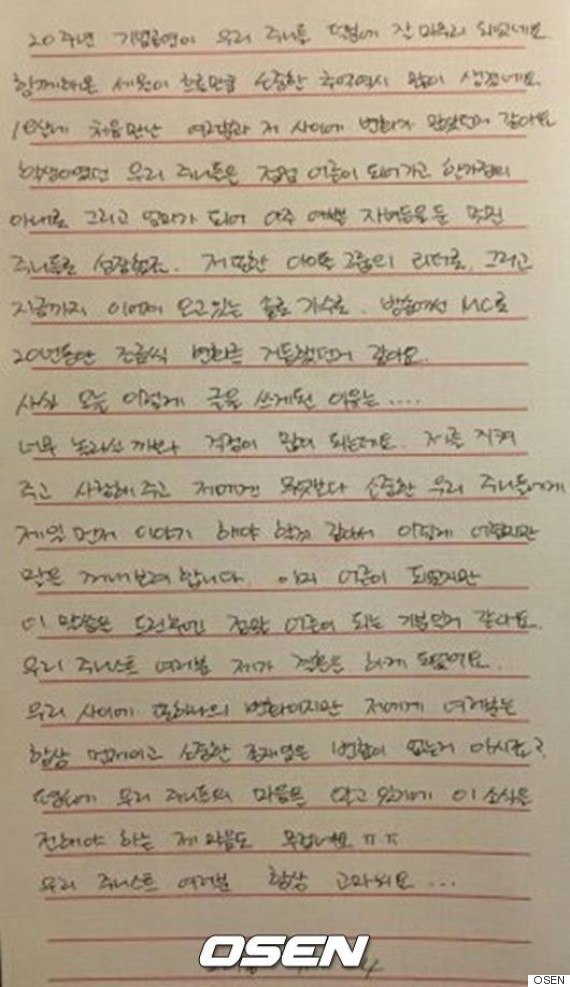 20주년 기념공연이 우리 주니들 덕분에 잘 마무리 되었네요
함께해온 세월이 흐른만큼 소중한 추억역시 많이 생겼네요.
18살에 처음만난 여러분과 저 사이에 변화가 많았던거 같아요
학생이였던 우리 주니들은 점점 어른이 되어가고 한가정의
아내로 그리고 엄마가 되어 아주 예쁜 자녀들을 둔 멋진
주니들로 성장했죠. 저 또한 아이돌 그룹의 리더로, 그리고
지금까지 이어져 오고있는 솔로 가수로, 방송에선 MC로
20년동안 조금씩 변화를 거듭했던거 같아요.
사실 오늘 이렇게 글을 쓰게된 이유는....
너무 놀라실까봐 걱정이 많이 되는데요. 저를 지켜
주고 사랑해주고 저에겐 무엇보다 소중한 우리 주니들에게
제일먼저 이야기 해야 할것 같아서 이렇게 어렵지만
말을 꺼내보려합니다. 이미 어른이 되었지만
이 말씀을 드린후엔 정말 어른이 되는 기분인거 같아요.
우리 주니스트 여러분 제가 결혼을 하게 되었어요.
우리 사이에 또하나의 변화이지만 저에게 여러분은
항상 먼저이고 소중한 존재였은 변함이 없는거 아시죠?
누구보다 우리 주니들의 마음을 알고 있기에 이 소식을
전해야 하는 제 마음도 무겁네요 ㅠㅠ
우리 주니스트 여러분 항상 고마워요...
OSEN
OSEN